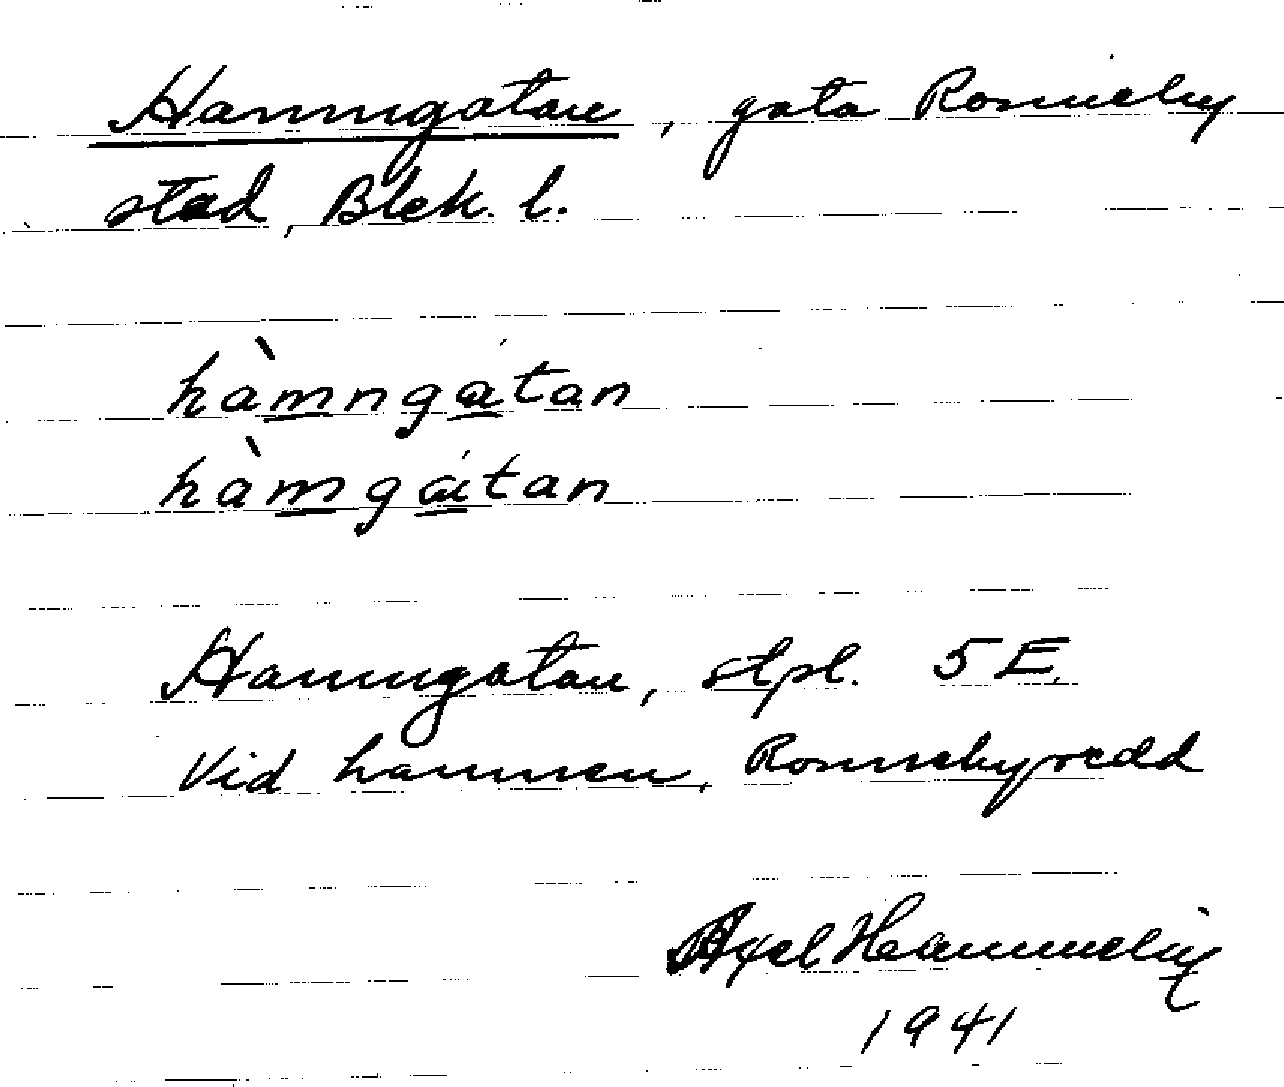 Hamngatan, gata Ronneby
stad, Blek. l.
hàmngátan
hàmgátan
Hamngatan, stpl. 5 E.
Vid hamnen, Ronnebyredd
Axel
1941